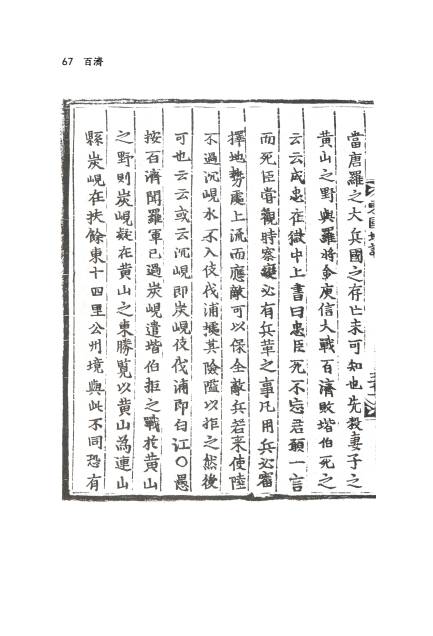 67 百濟
當唐羅之大兵國之存亡未可知也先殺妻子之
黃山之野與羅將金庾信大戰百濟敗堦伯死之
云云成忠在獄中上書曰忠臣死不忘君願一言
而死臣嘗觀時察變必有兵革之事凡用兵必審
擇地勢處上流而應敵可以保全敵兵若来使陸
不過沉峴水不入伎伐浦據其險隘以拒之然後
可也云云或云沉峴即炭峴伎伐浦即白江○愚
按百濟聞羅軍已過炭峴遣堦伯拒之戰於黃山
之野則炭峴疑在黃山之東勝覧以黃山為連山
縣炭峴在扶餘東十四里公州境與此不同恐有